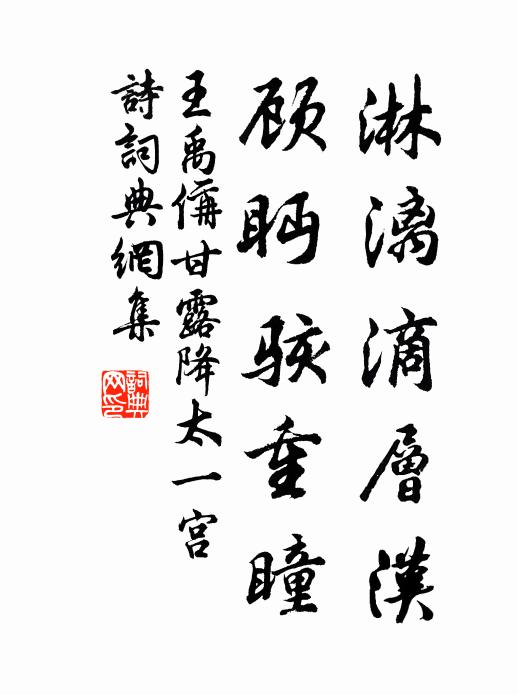 淋漓滴層漢
顾眄駭重瞳
王禹偁甘露降太一宫
詩詞典網集
詞典网印